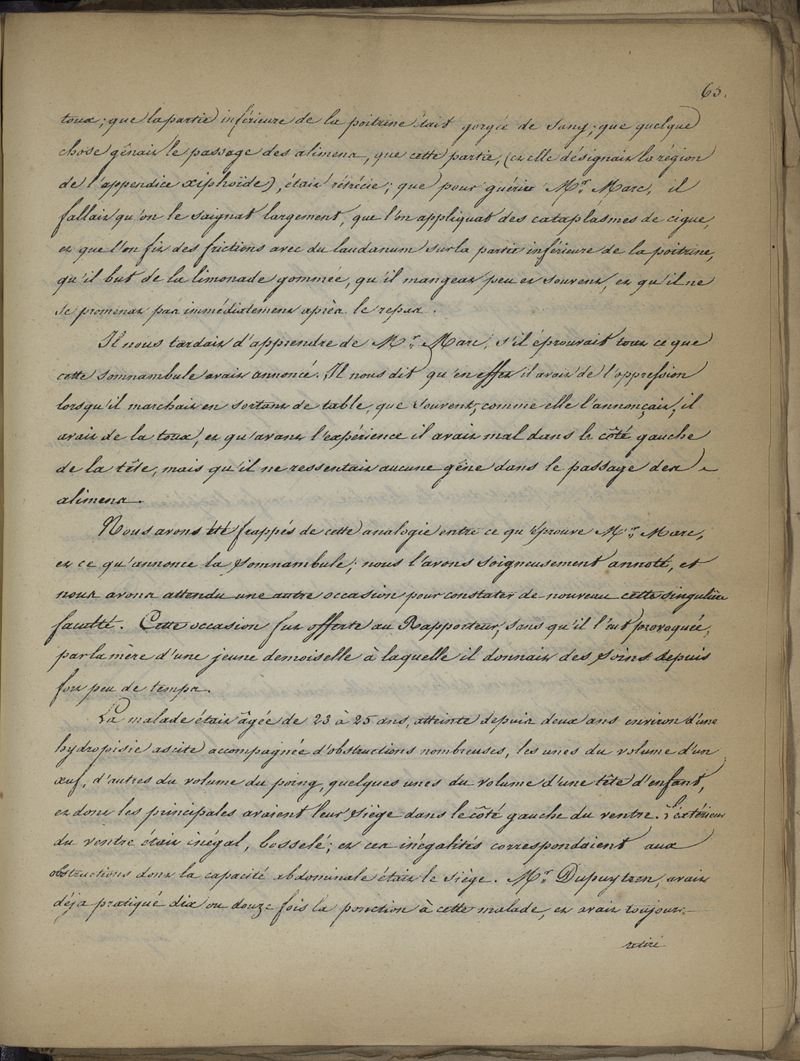 63.
toux; que la partie inférieure de la poitrine était gorgée de Sang; que quelque
chose gênait le passage des alimens, que cette partie, (et elle désignait la région
de l'appendice xiphoïde), était rétrécie; que pour guérir Mr. Marc, il
fallait qu'on le saignat largement, que l'on appliquat des cataplasmes de cigue,
et que l'on fit des frictions avec du laudanum sur la partie inférieure de la poitrine,
qu'il but de la limonade gommée, qu'il mangeat peu et souvent, et qu'il ne
se promenat pas immédiatement après le repas.
Il nous tardait d'apprendre de Mr. Marc, s'il éprouvait tout ce que
cette somnambule avait annoncé. Il nous dit qu'en effet il avait de l'oppression
lorsqu'il marchait en sortant de table, que souvent, comme elle l'annonçait, il
avait de la toux, et qu'avant l'expérience il avait mal dans le côté gauche
de la tête, mais qu'il ne ressentait aucune gêne dans le passage des
alimens.
Nous avons été frappés de cette analogie entre ce qu'éprouve Mr. Marc,
et ce qu'annonce la Somnambule; nous l'avons soigneusement annoté, et
nous avons attendu une autre occasion pour constater de nouveau cette singulière
faculté. Cette occasion fut offerte au Rapporteur, sans qu'il l'eut provoquée,
par la mère d'une jeune demoiselle à laquelle il donnait des soins depuis
fort peu de temps.
La malade était âgée de 23 à 25 ans, atteinte depuis deux ans environ d'une
hydropisie ascite accompagnée d'obstructions nombreuses, les unes du volume d'un
œuf, d'autres du volume du poing, quelques unes du volume d'une tête d'enfant,
et dont les principales avaient leur siège dans le côté gauche du ventre. L'extérieur
du ventre était inégal, bosselé; et ces inégalités correspondaient aux
obstructions dont la capacité abdominale était le siège. Mr. Dupuytren, avait
déja pratiqué dix ou douze fois la ponction à cette malade, et avait toujours
retiré